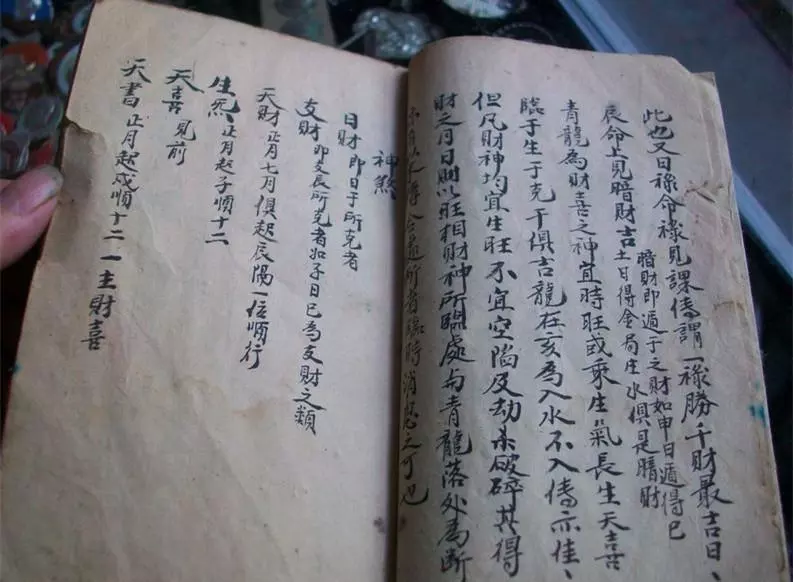 此也又日祿命祿見課傳謂一祿勝千財最吉日、
辰命上見暗財吉
暗財即遁于之財如申日遁得巳
土日得金局庄水俱是暗財
青龍為財喜之神宜時旺或乘生氣長生天喜
臨于生于克干俱吉龍在亥為入水不入傳亦佳、
但凡財神均宜生旺不宜空陷及劫杀破碎其得
財之月日則以旺相財神所臨處与青龍落处為斷
得合所者臨時消息之可也
神煞
日財 即日于所克者
支財 即支辰所克者如子日巳為支財之類
天財 正月七月俱起辰陽一位順行
生炁 正月起子順十二
天喜 見前
天書 正月起戌順十二 一主財喜